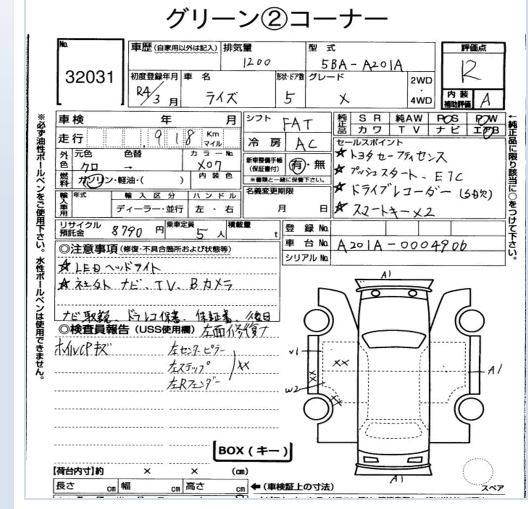 グリーン②コーナー
No.
32031
車歴 (自家用以外は記入)
排気量
1200
型式
5BA-A201A
評価点
R
初度登録年月
R4/3月
車名
ライズ
形状・ドア数
5
グレード
X
2WD
・
4WD
内装
補助評価
A
車検 年 月
走行 918 Km マイル
シフト
FAT
冷房
AC
純正品
SR 純AW PS PW
カワ TV ナビ エアB
外色
元色 色替
クロ →
カラーNo.
X07
内装色
燃料
ガソリン・軽油・( )
新車整備手帳
(保証書付)
有・無
※書類と一緒に保管下さい。
セールスポイント
★トヨタセーフティセンス
★プッシュスタート、ETC
★ドライブレコーダー
★スマートキー×2
輸入車用
輸入区分
ディーラー・並行
ハンドル
左・右
名義変更期限
月 日
リサイクル
預託金
8790円
乗車定員
5人
積載量
t
登録No.
車台No.
A201A-0004906
シリアルNo.
◎注意事項 (修復・不具合箇所および状態等)
★LEDヘッドライト
★ナビ、TV、Bカメラ
ナビ取説、ドラレコ保書、保証書、後日
◎検査員報告 (USS使用欄) 左面修復了
ホイルCPキズ
左センターピラー
左ステップ
左Rフェンダー
××
A1
V1
××
××
W2
××
A1
A1
BOX(キー)
スペア
【荷台内寸】約 × × (cm)
長さ cm 幅 cm 高さ cm
←(車検証上の寸法)
※必ず油性ボールペンをご使用下さい。水性ボールペンは使用できません。
←純正品に限り該当部に○をつけて下さい。